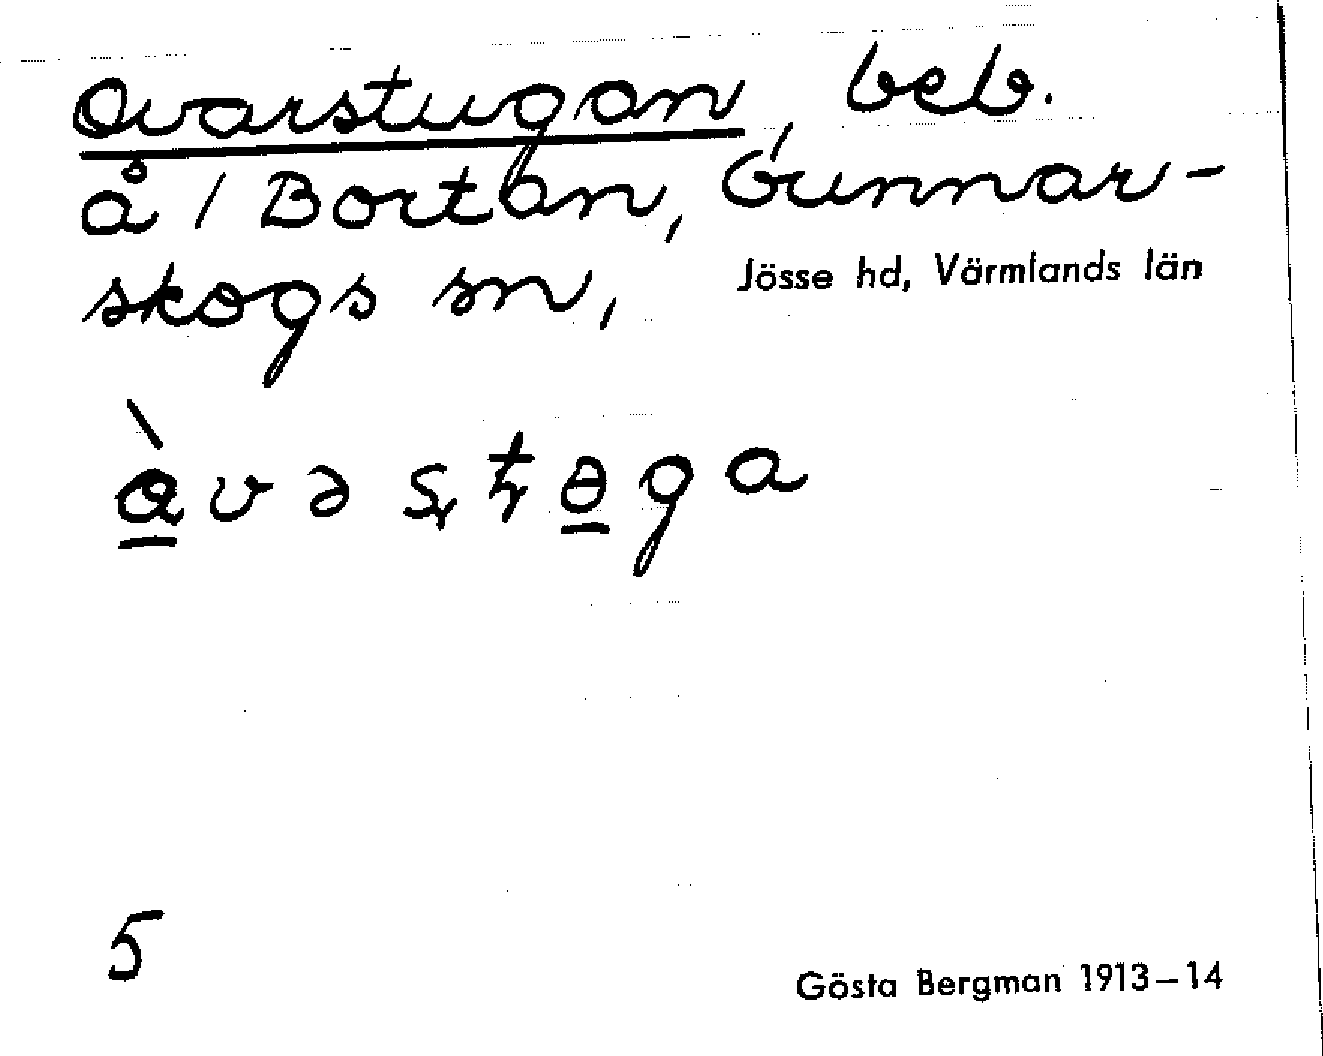 Ovarstugan, beb.
å 1 Bortan, Gunnar-
skogs sn, Jösse hd, Värmlands län
5
Gösta Bergman 1913–14